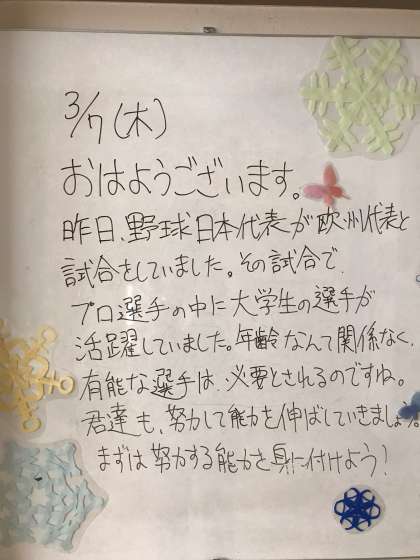 3/7(木)
おはようございます。
昨日、野球日本代表が欧州代表と
試合をしていました。その試合で、
プロ選手の中に大学生の選手が
活躍していました。年齢なんて関係なく、
有能な選手は、必要とされるのですね。
君達も、努力して能力を伸ばしていきましょう。
まずは努力する能力を身に付けよう!